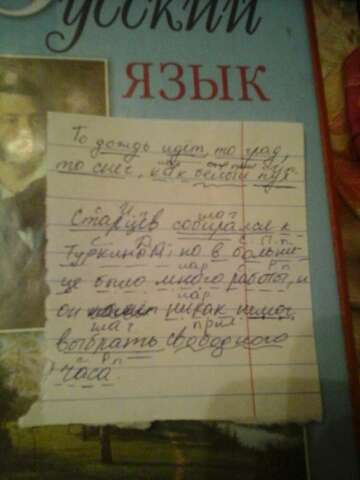 Русский
ЯЗЫК
То дождь идет, то град,
то снег, как белый пух.
Старцев собирался к
Туркиным, но в больни-
це было много работы, и
он никак не мог
выбрать свободного
часа.